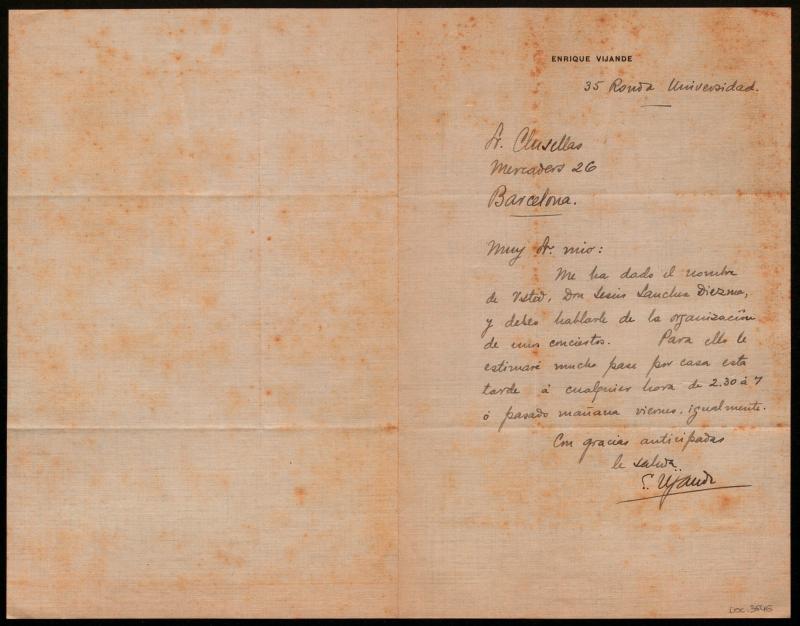 ENRIQUE VIJANDE
35 Ronda Universidad.
Sr. Clusellas
Mercaders 26
Barcelona.
Muy Sr. mio:
Me ha dado el nombre
de Usted, Don Jesús Sanchez Diezma,
y debeo hablarle de la organización
de unos conciertos. Para ello le
estimaré mucho pase por casa esta
tarde á cualquier hora de 2.30 á 7
ó pasado mañana viernes, igualmente.
Con gracias anticipadas
le saluda
E. Vijande
DOC. 3645